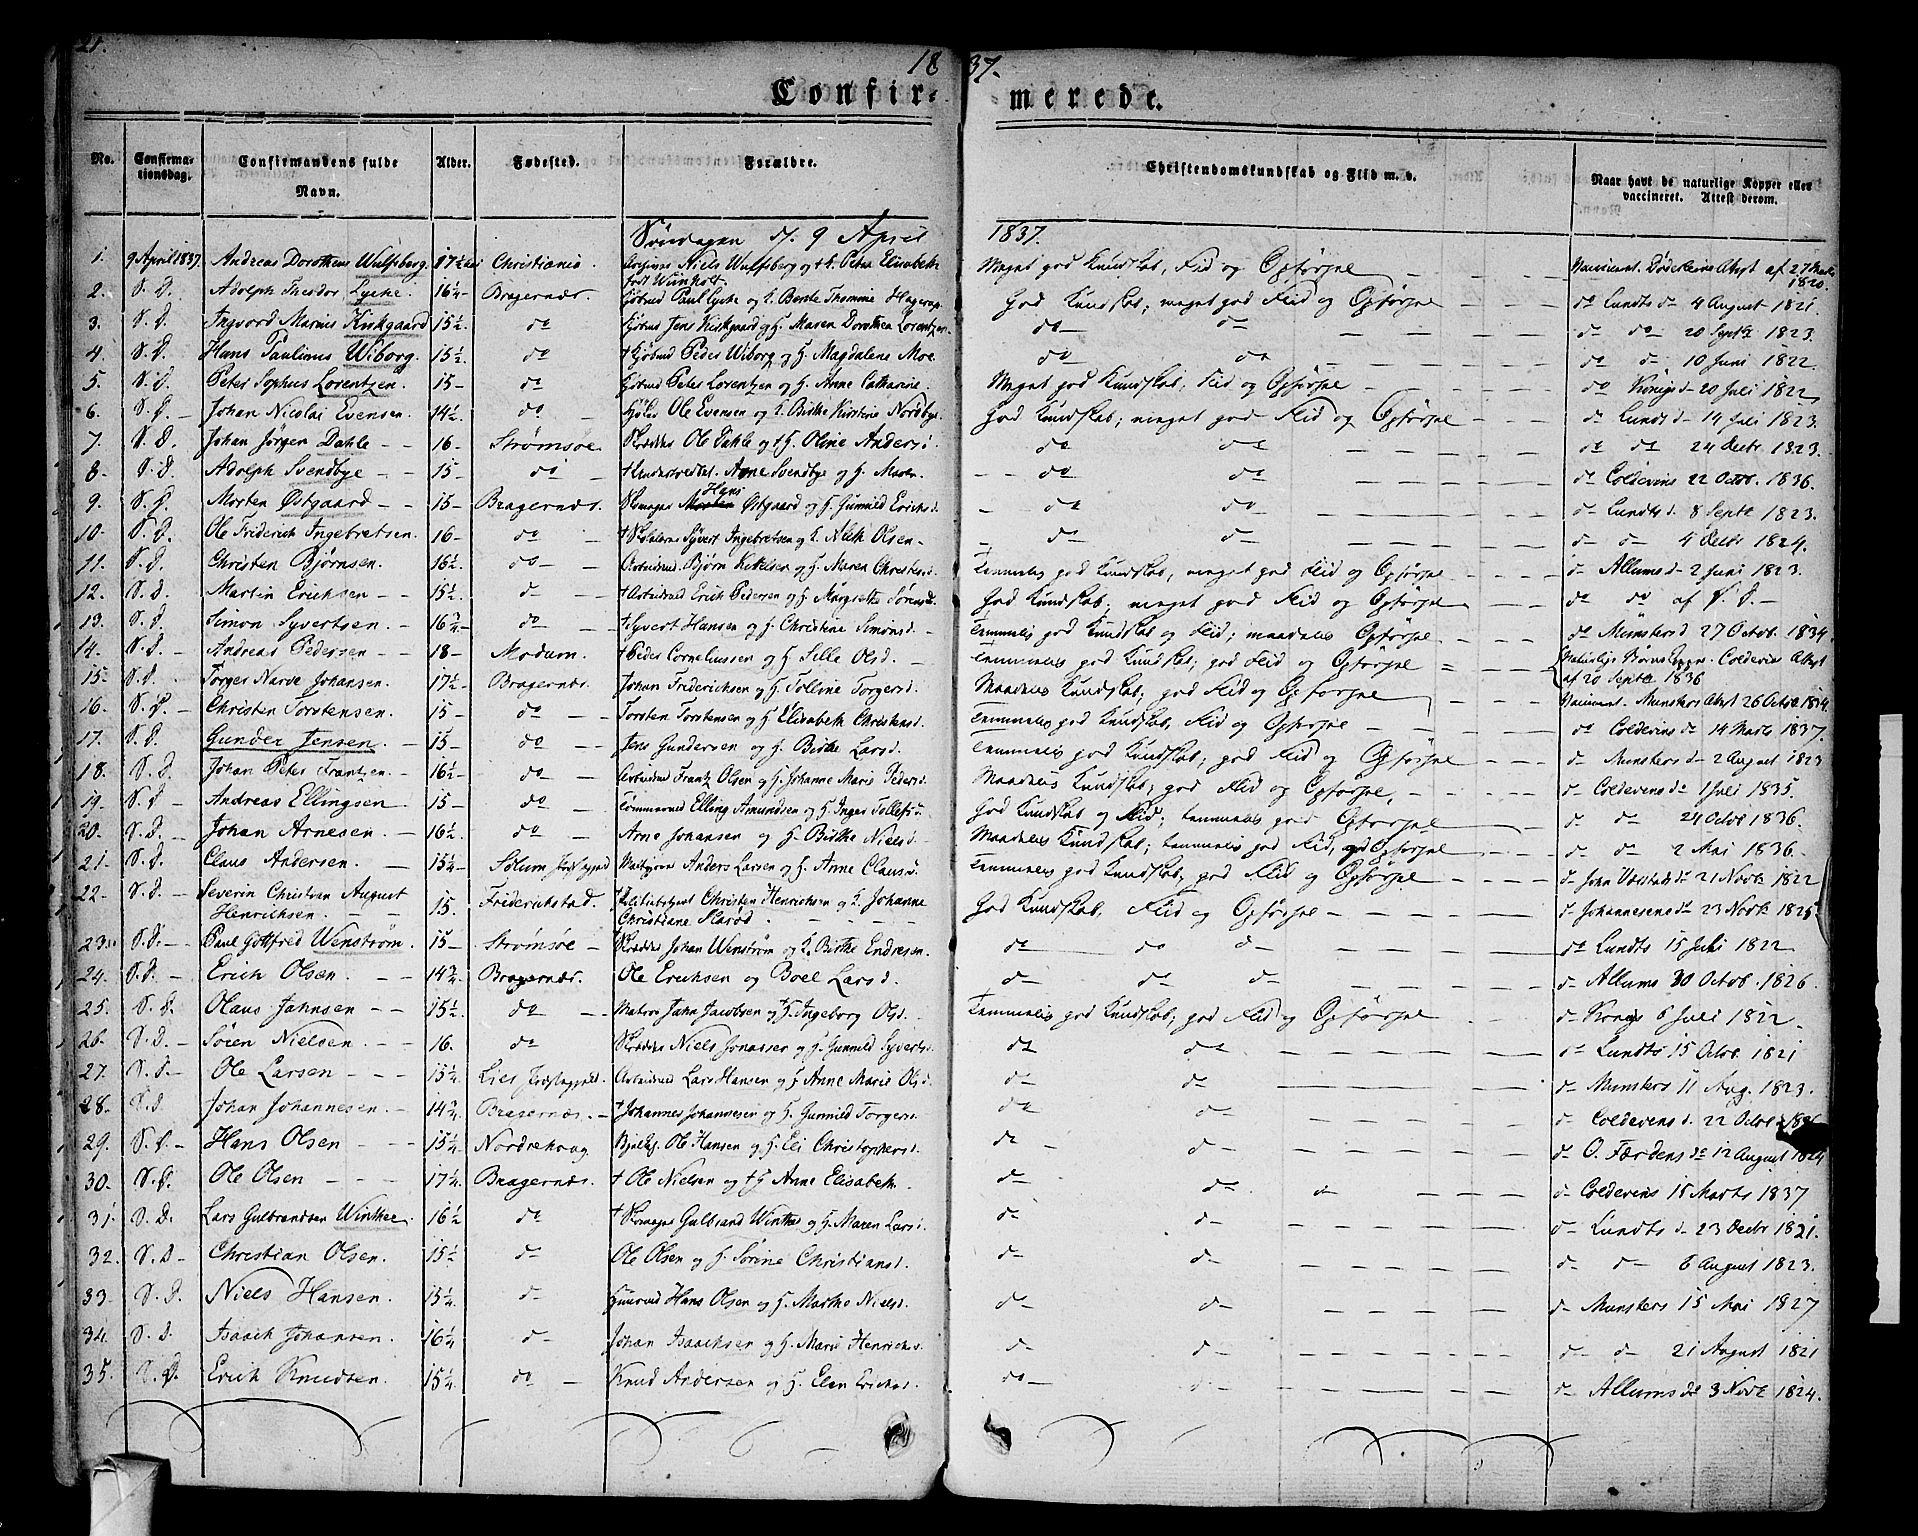 21.
18 37.
Confir- merede.
No. Confirma-tionsdag. Confirmandens fulde Navn. Alder. Fødested. Forældre. Christendomskundskab og Flid m. v. Naar havt de naturlige Kopper eller vaccineret. Attest derom.
Søndagen d. 9 April 1837.
1. 9 April 1837. Andreas Dorotheus Wulfsberg. 17½ Christiania. Niels Wulfsberg og Petra Elisabeth Meget god Kundskab, Flid og Opførsel Vaccineret. Attest af 27 1820.
2. S. D. Adolph Theodor Lycke. 16¼ Bragernæs. Kjøbmd Paul Lycke og H. Bente Thomine God Kundskab; meget god Flid og Opførsel do Lundts do 4 August 1821.
3. S. D. Ingvord Marius Kirkgaard 15½ do Kjøbmd Jens Kirkgaard og H. Maren Dorothea Lorentzen do do do do 20 Septbr 1823.
4. S. D. Hans Paulinus Wiborg. 15½ do + Kjøbmd Peder Wiborg og H. Magdalene Moe. do do do d. 10 Juni 1822.
5. S. D. Peter Sophus Lorentzen. 15 do Kjøbmd Peter Lorentzen og H. Anne Cathrine. Meget god Kundskab, Flid og Opførsel do Königs d 20 Juli 1822
6. S. D. Johan Nicolai Evensen. 14½ do Ole Evensen og H. Birthe Kirstine Nordbye God Kundskab; meget god Flid og Opførsel d Lunds d 14 Juli 1823.
7. S. D. Johan Jørgen Dahle 16 Strømsøe Skrædder Ole Dahle og + H. Oline Andersd. do do do do 24 Decbr 1823.
8. S. D. Adolph Svendbye 15 do + Arne Svendbye og H. Maren do do d Coldevins 22 Octob. 1836.
9. S. D. Morten Østgaard 15 Bragernæs. Skomager Hans Østgaard og H. Gunnild Erichsd. do do d Lundts d. 8 Septbr 1823.
10. S. D. Ole Friderich Ingebretsen. 16 do + Syvert Ingebretsen og H. Olsen do do d d 4 Decbr 1824.
11. S. D. Christen Bjørnsen. 16½ do Arbeidsmd Bjørn Kittelsen og H. Maren Christensd. Temmelig god Kundskab, meget god Flid og Opførsel d Allums d 2 Juni 1823.
12. S. D. Martin Erichsen 15½ d + Arbeidsmd Erich Pedersen og H. Margrethe Sørensd. God Kundskab; meget god Flid og Opførsel do do af S. D.
13. S. D. Simon Syvertsen. 16¾ do + Syvert Hansen og H. Christine Simonsd. Temmelig god Kundskab og Flid; maadelig Opførsel. do Münsters d 27 Octob. 1834
14. S. D. Andreas Pedersen 18 Modum. + Peder Corneliussen og H. Sille Olsd. Temmelig god Kundskab; god Flid og Opførsel Naturlige Børnekopper. Coldevins Attest af 20 Septbr 1836
15. S. D. Torger Narve Johansen. 17½ Bragernæs. Johan Friderichsen og H. Tolline Torgersd. Maadelig Kundskab, god Flid og Opførsel
16. S. D. Christen Torstensen. 15 do Torsten Torstensen og H. Elisabeth Christensd. Temmelig god Kundskab, Flid og Opførsel Vaccineret. Munsters Attest 26 Octbr 1834.
17. S. D. Gunder Jensen. 15 do Jens Gundersen og H. Birthe Larsd. Temmelig god Kundskab; god Flid og Opførsel do Coldevins do 14 Marts 1837.
18. S. D. Johan Peter Frantzen. 16½ do Arbeidsmd Frantz Olsen og H. Johanne Marie Pedersd. d Munsters d 2 August 1823
19. S. D. Andreas Ellingsen 15 do Tømmermd Elling Amundsen og H. Inger Tollefsd. Maadelig Kundskab, god Flid og Opførsel, d Coldevens d 1 Juli 1835.
20. S. D. Johan Arnesen. 16½ do Arne Johansen og H. Birthe Nielsd. God Kundskab og Flid; temmelig god Opførsel d d 24 Octob 1836.
21. S. D. Claus Andersen. 15¼ Solum Anders Larsen og H. Anne Clausd. Maadelig Kundskab; temmelig god Flid, god Opførsel d d 2 Mai 1836.
22. S. D. Severin Christian August Henrichsen. 15. Friderichstad. Christen Henrichsen og H. Johanne Christiane Temmelig god Kundskab, god Flid og Opførsel d John d 21 Novbr 1822
God Kundskab, Flid og Opførsel d Johannesens d 23 Novbr 1825
23. S. D. Paul Gottfred Wenstrøm. 15 Strømsøe Skrædder Johan Wenstrøm og H. Birthe Endresen. do do d do Lundts 15 Juli 1822
24. S. D. Erich Olsen. 14¾ Bragernæs. Ole Erichsen og Boel Larsd. d d d d Allums 30 Octob. 1826.
25. S. D. Olaus Jahnsen 15½ do Matros Jahn Jacobsen og H. Ingeborg Olsd. Temmelig god Kundskab; god Flid og Opførsel d Kongs 6 Juli 1822.
26. S. D. Søren Nielsen. 16. do Skrædder Niels Jonassen og H. Gunnild Syvertsd. do do d Lundts 15 Octob. 1821
27. S. D. Ole Larsen 15¼ Lier Præstegjeld. Arbeidsmd Lars Hansen og H. Anne Marie Olsd. d d d Munsters 11 Aug. 1823.
28. S. D. Johan Johannesen. 14¾ Bragernæs. + Johannes Johannesen og H. Gunnild Torgersd. do d d Coldevens d. 22 Octob
29. S. D. Hans Olsen 15¼ Nordrehoug Ole Hansen og H. Eli Christophersd. d d d O. Færdens do 12 August 1824
30. S. D. Ole Olsen 17¼ Bragernæs. + Ole Nielsen og + H. Anne Elisabeth. d d d d Coldevens 15 Marts 1837
31. S. D. Lars Gulbrandsen Winther. 16½ do + Skomager Gulbrand Winther og H. Maren Larsd. d d d Lundts d 23 Decbr 1821.
32. S. D. Christian Olsen. 15½ d Ole Olsen og H. Sørine Christiansd. d d d d 6 August 1823.
33. S. D. Niels Hansen. 15¼ d Hans Olsen og H. Marthe Nielsd. d d d Munsters 15 Mai 1827
34. S. D. Isaach Johansen 16¼ d Johan Isaachsen og H. Marie Henrichsd. d d d d 21 August 1821
35. S. D. Erich Knudsen 15¼ do Knud Andersen og H. Elen Erichsd. do d d Allums do 3 Novbr 1824.